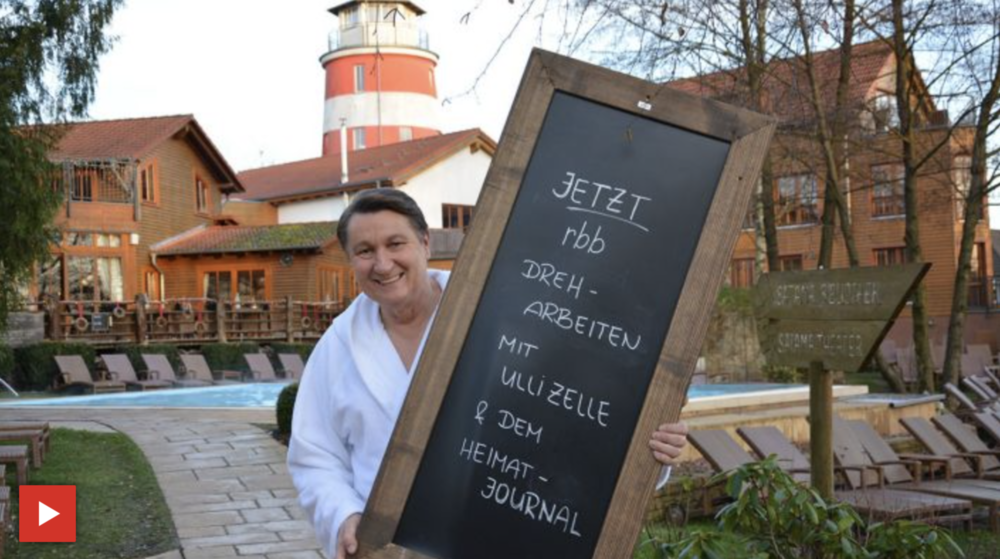 JETZT
rbb
DREH-
ARBEITEN
MIT
ULLI ZELLE
& DEM
HEIMAT-
JOURNAL